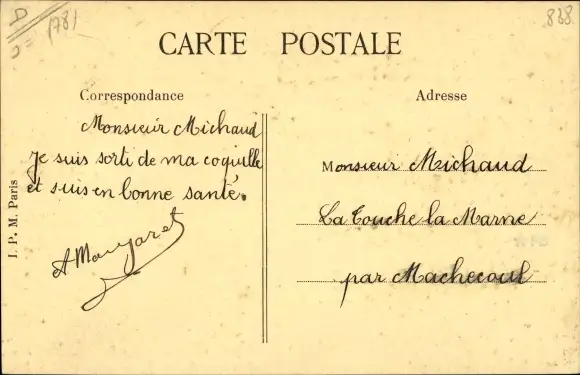 (781
838
CARTE POSTALE
Correspondance
Monsieur Michaud
Je suis sorti de ma coquille
et suis en bonne santé.
J. P. M. Paris
Adresse
Monsieur Michaud
La Touche la Marne
par Machecoul